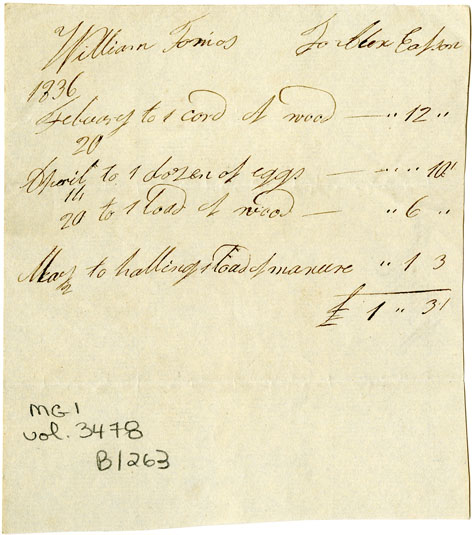 William Tomos To Alex Easson
1836
Febuary to 1 cord of wood — " 12 "
20
April to 1 dozen of eggs — " " 10
14
20 to 1 load of wood — " 6 "
May to halling 1 load of manure " 1 3
2
£ 1 " 3
MG1
vol. 3478
B1263